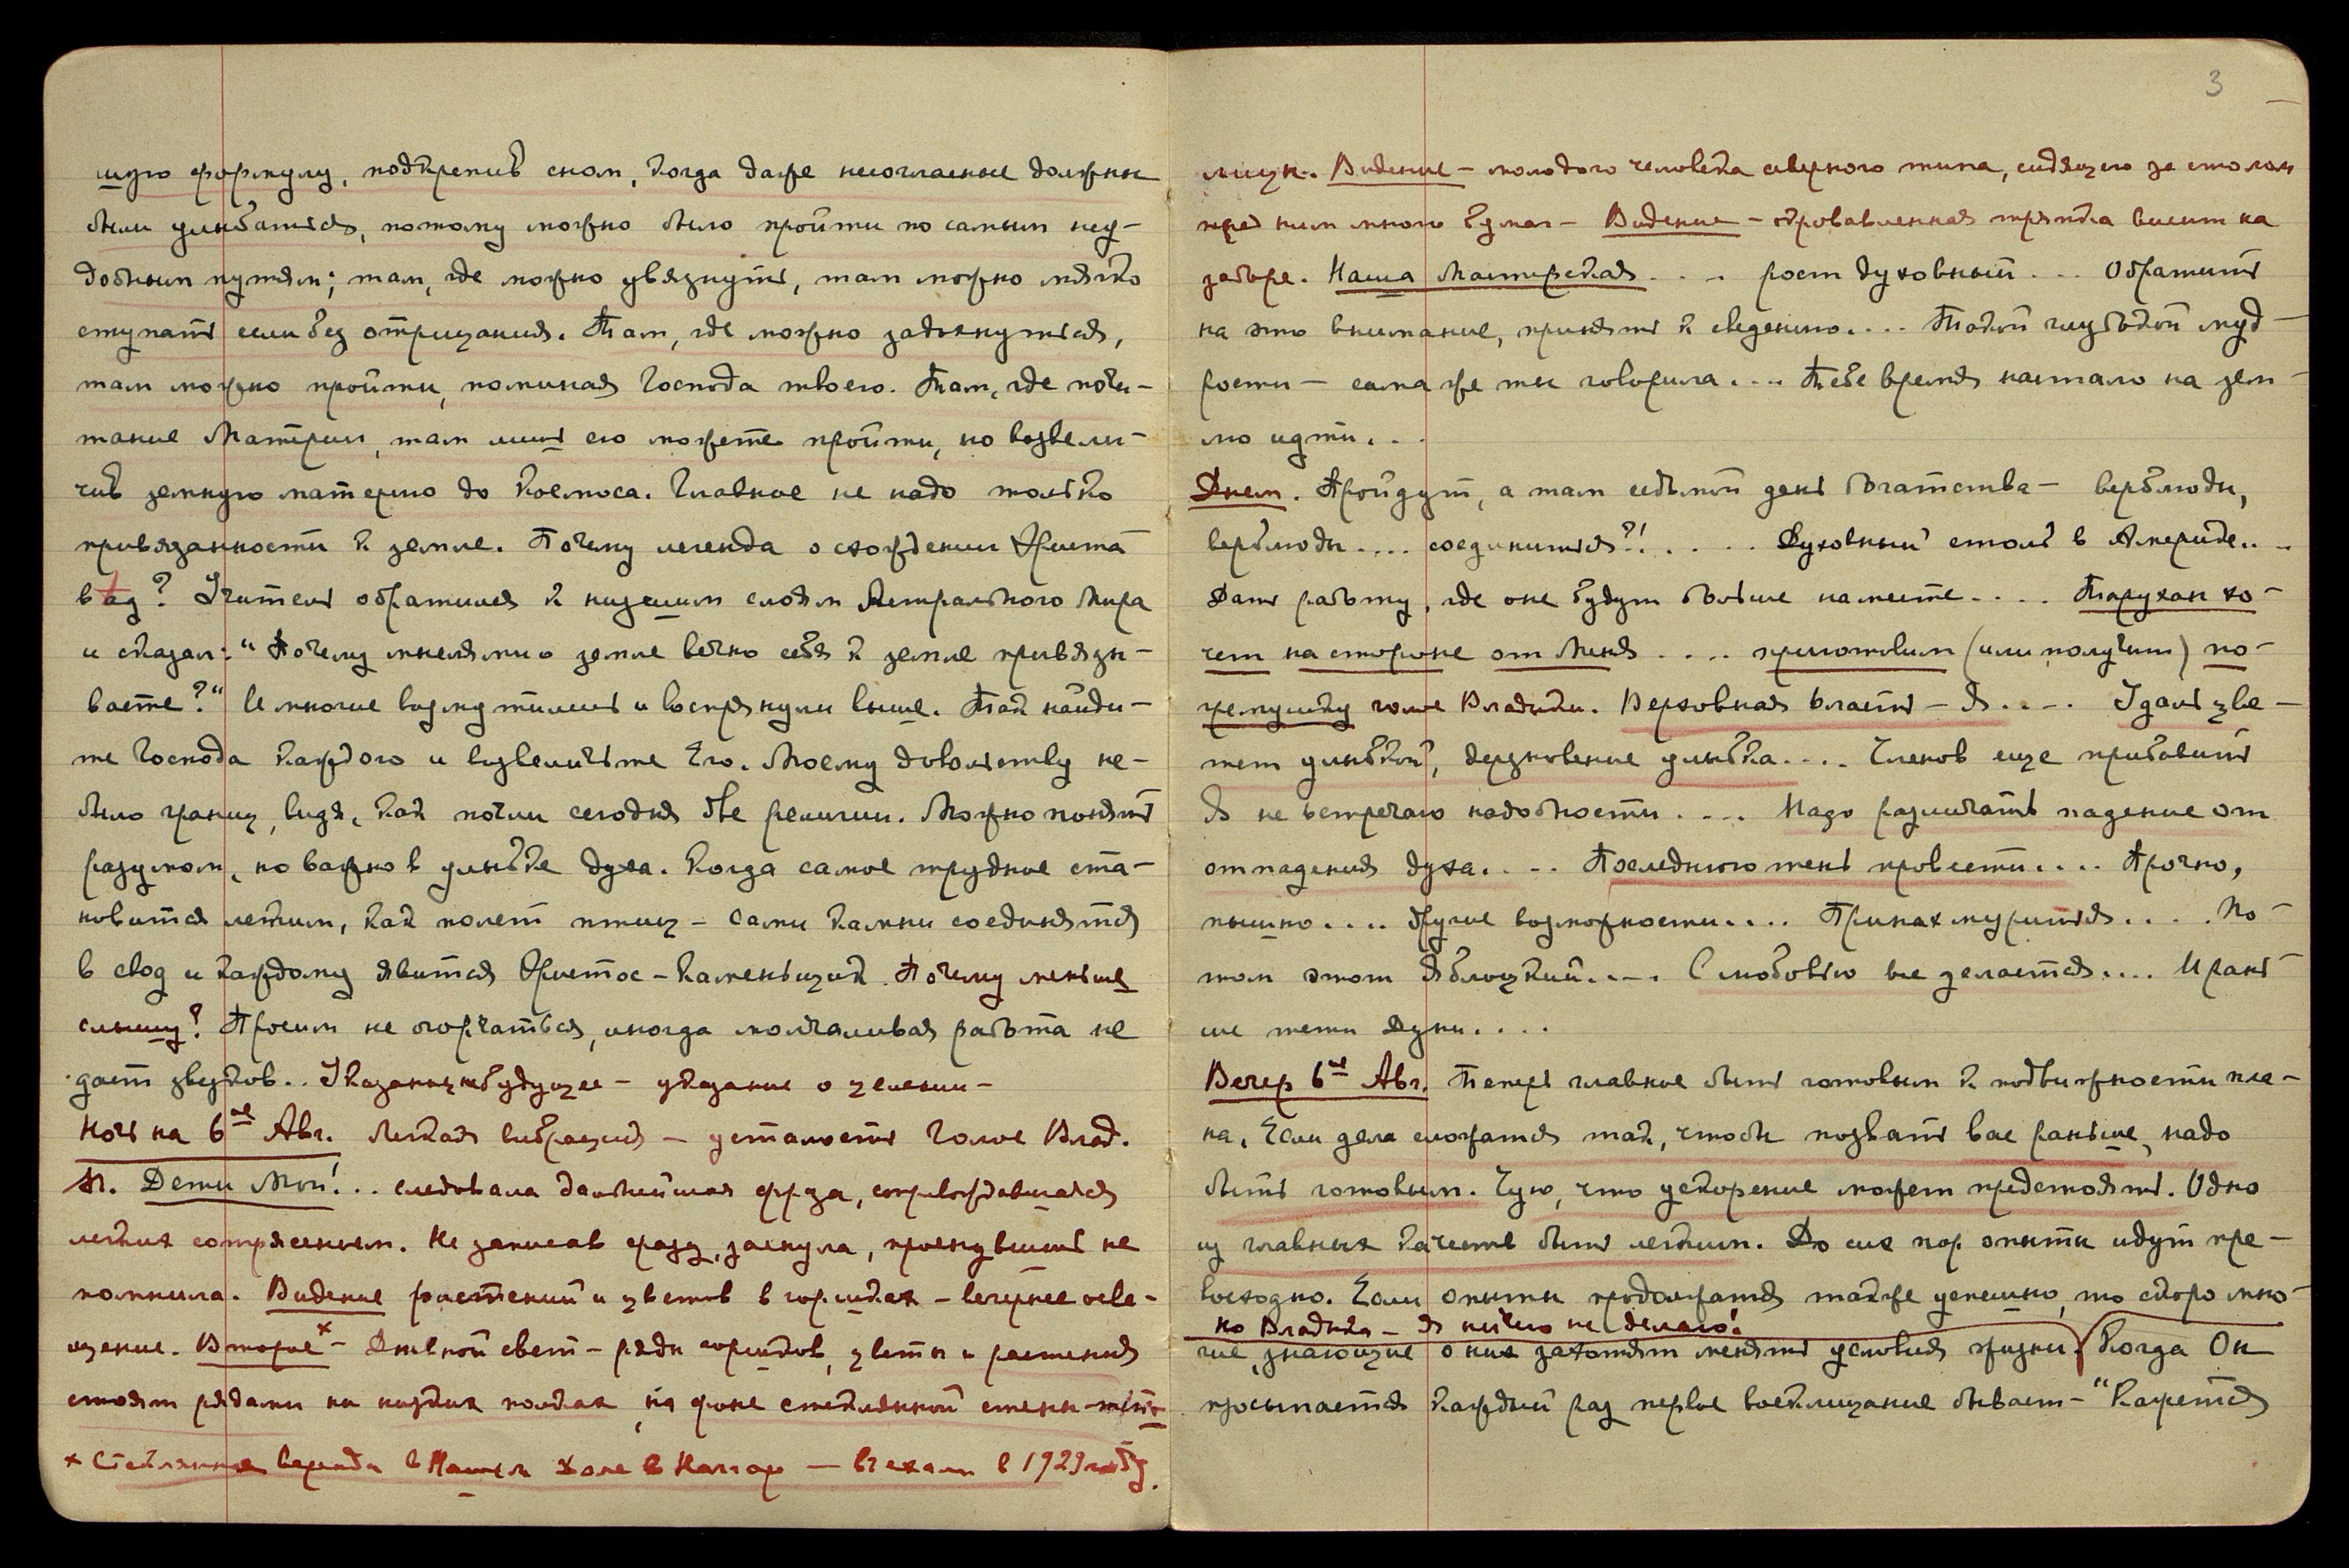 шую формулу, подкрепив сном, когда даже несогласные должны
были улыбаться, потому можно было пройти по самым неу-
добным путям; там, где можно увязнуть, там можно мягко
ступать если без отрицания. Там, где можно задохнуться,
там можно пройти, поминая Господа твоего. Там, где почи-
тание Материи, там лишь его можете пройти, но возвели-
чив земную материю до Космоса. Главное не надо только
привязанности к земле. Почему легенда о схождении Христа
в ад? Учитель обратился к низшим слоям Астрального Мира
и сказал: "Почему мыслями о земле вечно себя к земле привязы-
ваете?" И многие возмутились и воспрянули выше. Так найди-
те Господа каждого и возвеличьте Его. Моему довольству не-
было границ, видя, как почли сегодня две религии. Можно понять
разумом, но важно в улыбке духа. Когда самое трудное ста-
новится легким, как полет птиц - сами камни соединятся
в свод и каждому явится Христос - Каменьщик. Почему меньше
слышу? Просим не огорчаться, иногда молчаливая работа не
дает звуков.. Указания на будущее - указание о целении -
Ночь на 6ое Авг. Легкая вибрация - усталость Голос Влад.
М. Дети Мои!.. следовала дальнейшая фраза, сопровождавшаяся
легким сотрясеньем. Не записав фразу, заснула, проснувшись не
помнила. Видение растений и цветов в горшках - вечернее осве-
щение. Второе x - Дневной свет - ряды горшков, цветы и растения
стоят рядами на низких полках, на фоне стеклянной стены -
x Стеклянная веранда в Нашем Холе в Наггаре - въехали в 1929 году.
3
лицы. Видение - молодого человека северного типа, сидящего за столом
перед ним много бумаг - Видение - окровавленная тряпка висит на
заборе. Наша Мастерская . . . рост духовный . . . Обратить
на это внимание, принять к сведению.... Такой глубокой муд-
рости - сама же ты говорила.... Тебе время настало на зем-
лю идти...
Днем. Пройдут, а там седьмой день богатства - верблюды,
верблюды .... соединиться?!..... Духовный столь в Америке....
Дать работу, где оне будут больше на месте.... Тарухан хо-
чет на стороне от Меня .... приготовим (или получит) по-
гремушку голос Владыки. Верховная власть - Я.... Удаль цве-
тет улыбкой, дерзновение улыбка.... Членов еще прибавить
Я не встречаю надобности .... Надо различать падение от
отпадения духа.... Последнюю тень провести.... Прочно,
пышно.... Другие возможности.... Принахмуриться..... По-
том этот Яблоцкий.... С любовью все делается.... Играют
ше тети Дуни....
Вечер 6ое Авг. Теперь главное быть готовым к подвижности пла-
на. Если дела сложатся так, чтобы позвать вас раньше, надо
быть готовым. Чую, что ускорение может предстоять. Одно
из главных качеств быть легким. До сих пор опыты идут пре-
восходно. Если опыты продолжатся также успешно, то скоро мно-
но Владыка - я ничего не делаю!
гие, знающие о них захотят менять условия жизни. Когда Он
просыпается каждый раз первое восклицание бывает - "Кажется